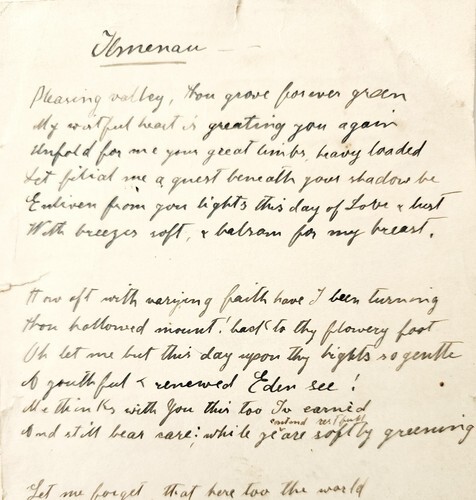 Ilmenau
Pleasing valley, thou grove forever green
My wistful heart is greating you again
Unfold for me your great limbs heavy loaded
Let me a guest beneath your shadow be
Enliven from your hights this day of Love & lust
With breezes soft, & balsam for my breast.
How oft with varying faith have I been turning
thou hallowed mount! back to thy flowery foot
Oh let me but this day upon thy hights so gentle
A youthful & renewed Eden see!
Me thinks with You this too I've earned
And still bear care: while ye are softly greening
Let me forget that here too the world